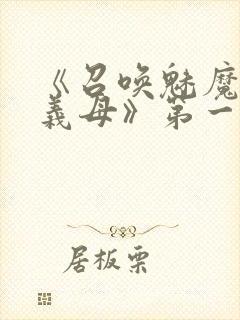 《召唤魅魔
義母》第一
居板栗